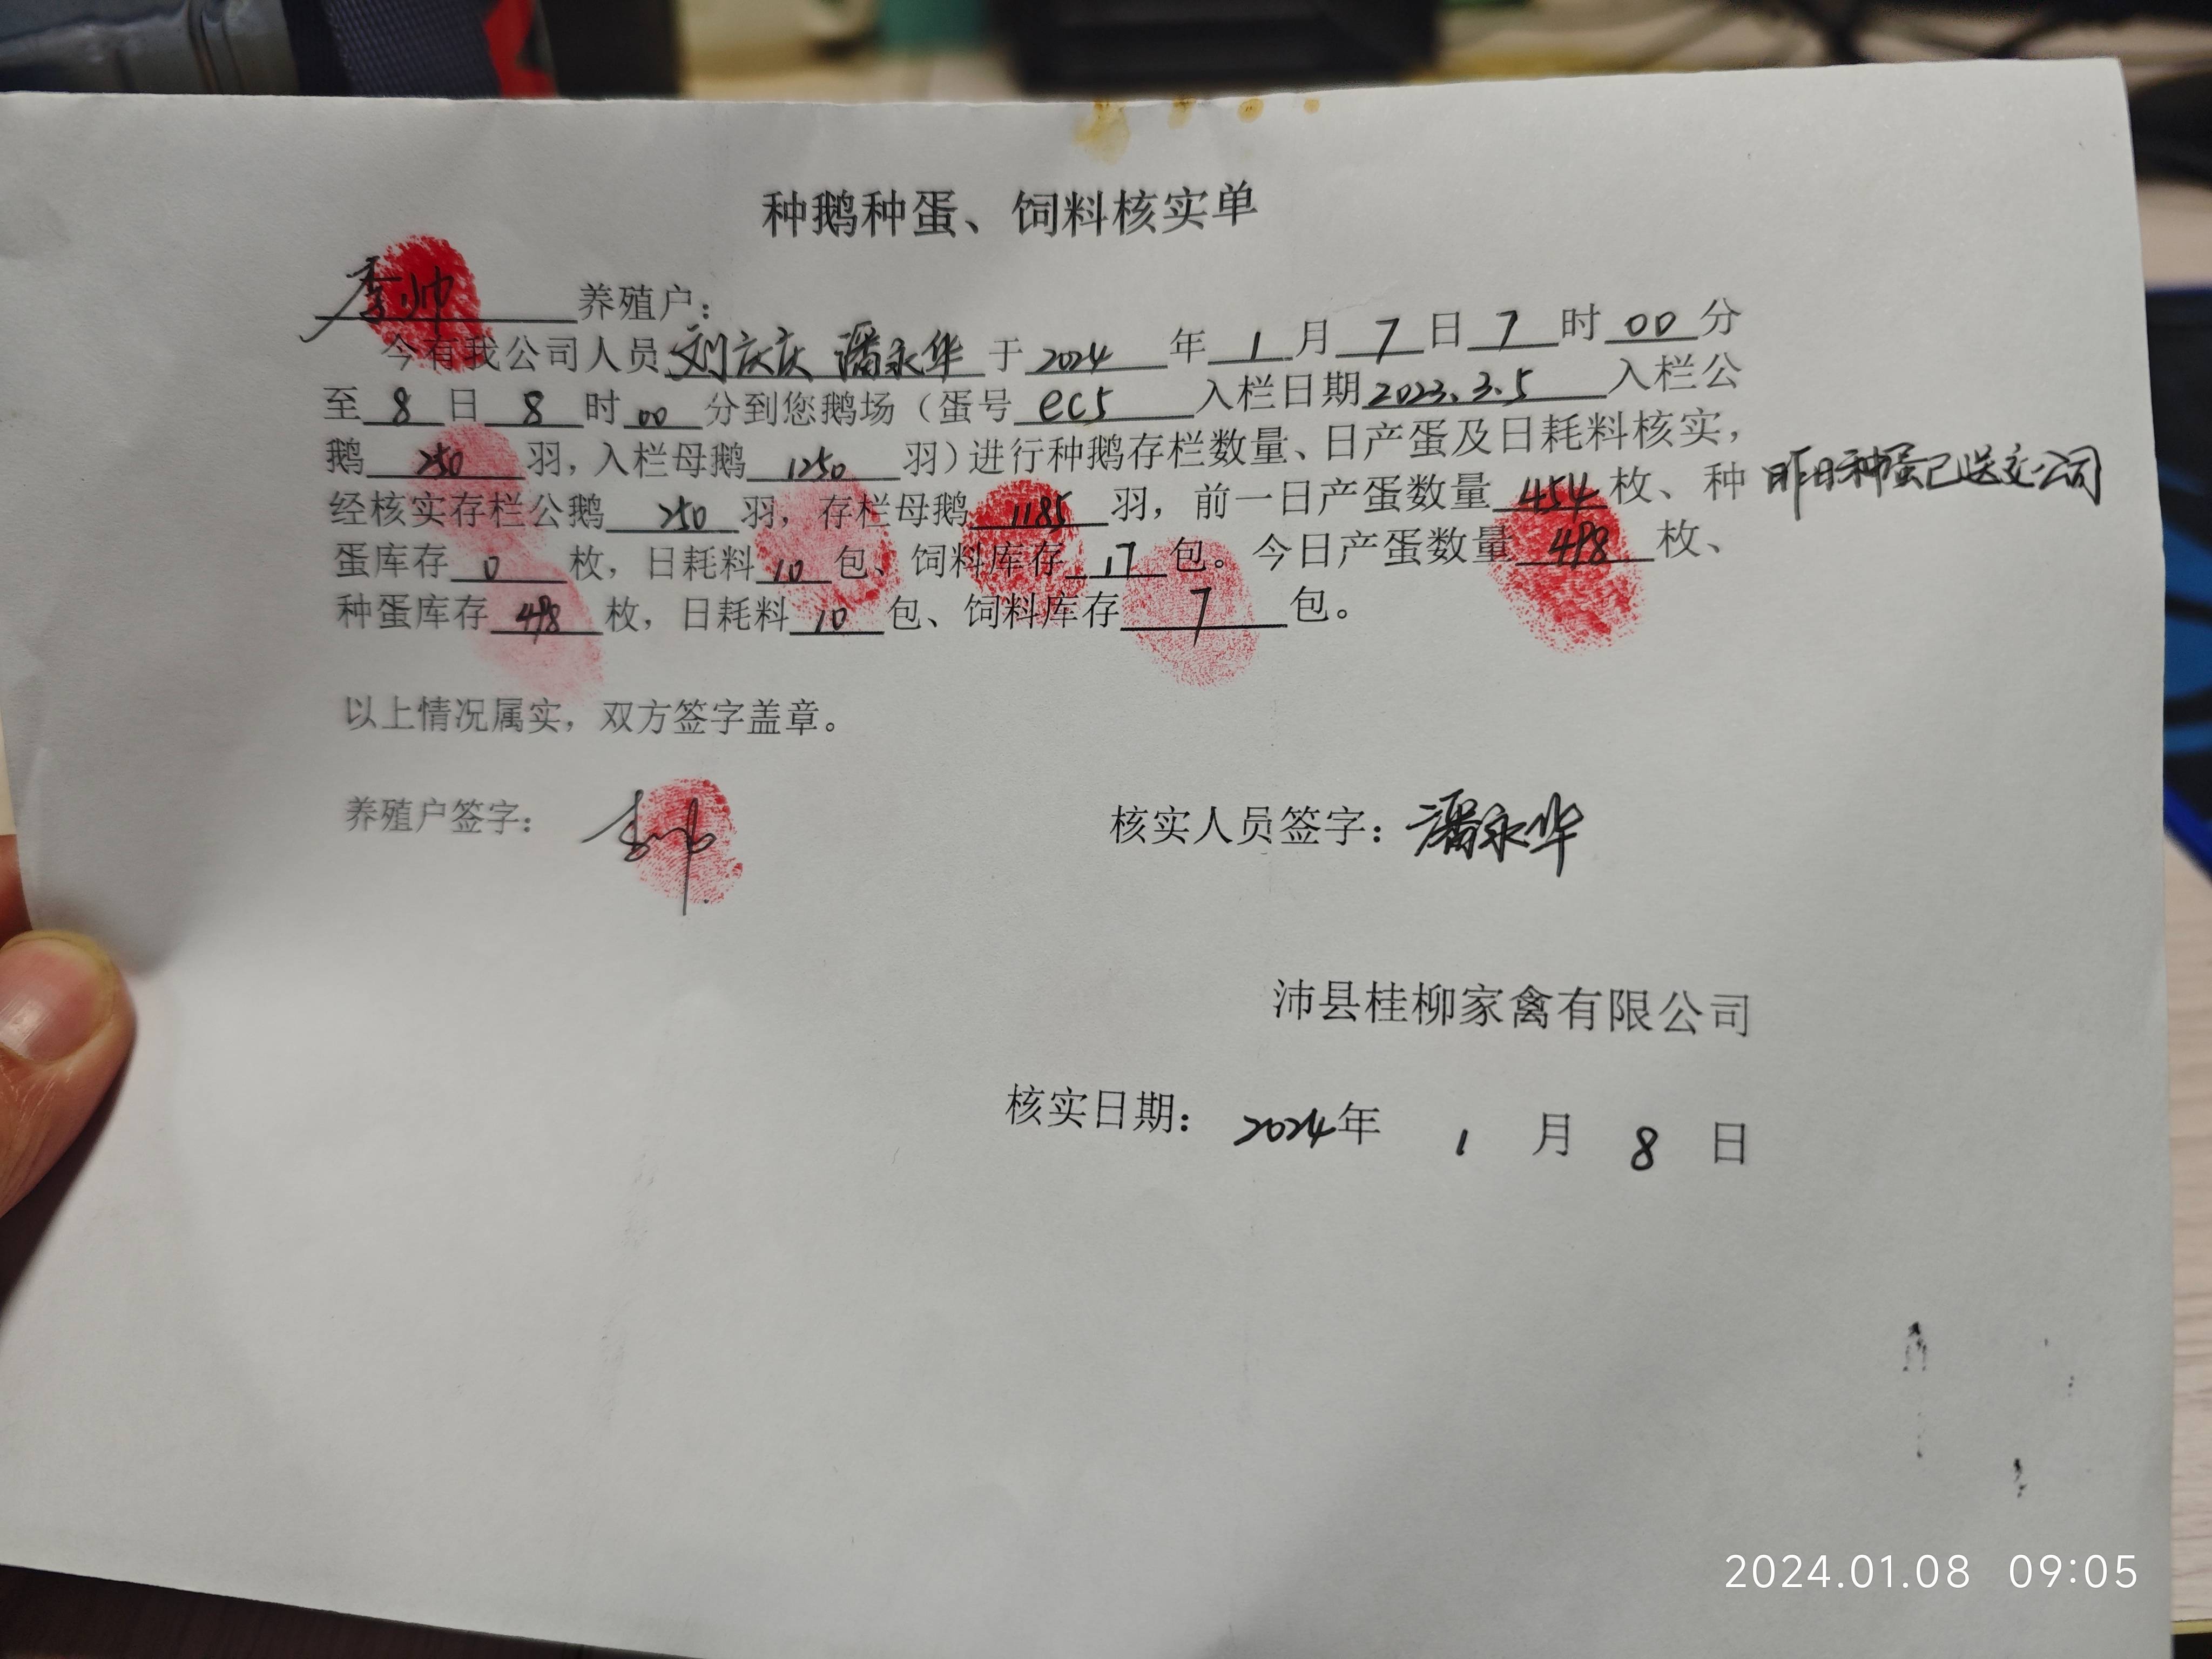 种鹅种蛋、饲料核实单
李帅 养殖户：
今有我公司人员 刘庆庆 潘永华 于 2024 年 1 月 7 日 7 时 00 分
至 8 日 8 时 00 分到您鹅场（蛋号 ec5 入栏日期 2023.3.5 入栏公
鹅 250 羽，入栏母鹅 1250 羽）进行种鹅存栏数量、日产蛋及日耗料核实，
经核实存栏公鹅 250 羽，存栏母鹅 1185 羽，前一日产蛋数量 454 枚、种 昨日种蛋已送交公司
蛋库存 0 枚，日耗料 10 包、饲料库存 17 包。今日产蛋数量 498 枚、
种蛋库存 498 枚，日耗料 10 包、饲料库存 7 包。
以上情况属实，双方签字盖章。
养殖户签字： 李帅 核实人员签字：潘永华
沛县桂柳家禽有限公司
核实日期： 2024年 1 月 8 日
2024.01.08 09:05